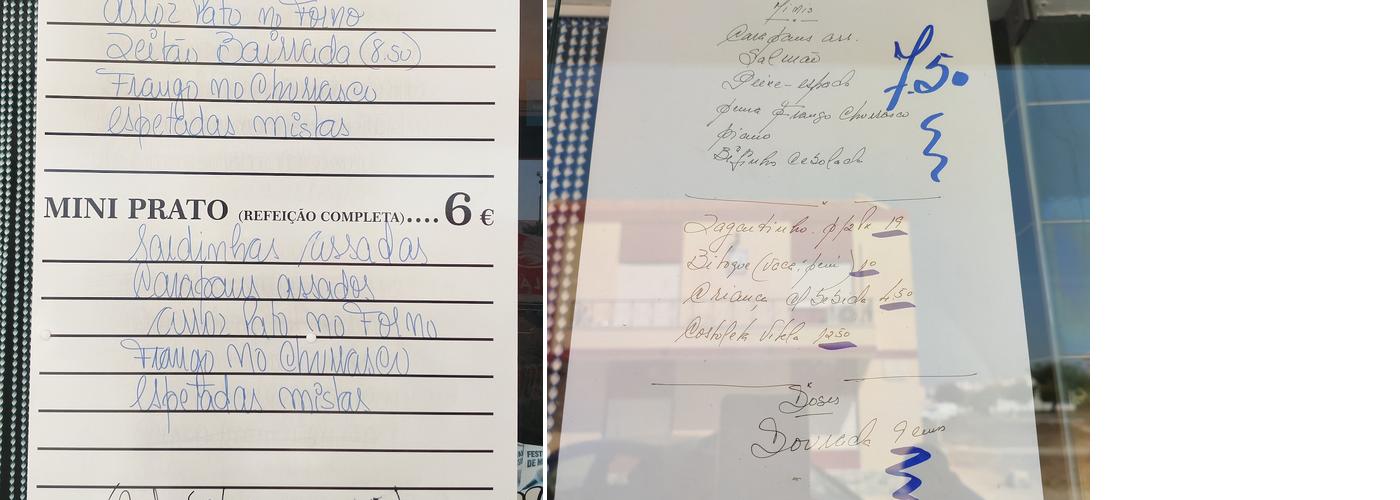 Arroz Pato no Forno
Leitão Bairrada (8.50)
Frango no Churrasco
espetadas mistas
MINI PRATO (REFEIÇÃO COMPLETA)....6 €
Sardinhas Assadas
Carapaus assados
Arroz Pato no Forno
Frango no Churrasco
espetadas mistas
FEST
DE M
Minis
Carapaus ass.
Salmão
7.50
Peixe-espada
perna Frango Churrasco
piano
Bifinho Cebolada
Lagartinho. p/2 Px 19
Bitoque (vaca, peru) 10
Criança c/ Bebida 4.50
Costoleta Vitela 12.50
Doses
Dourada 9 euros